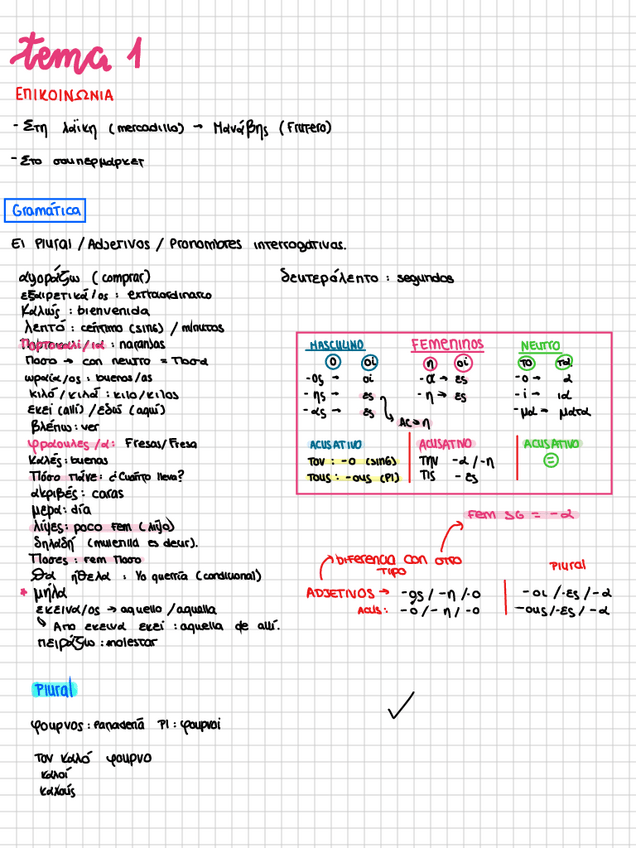 tema 1
ΕΠΙΚΟΙΝΩΝΙΑ
- Στη λαϊκη (mercadillo) → Μανάβης (Frutero)
- Στο σουπερμαρκετ
Gramática
El Plural / Adjetivos / Pronombres interrogativos.
αγοράζω (comprar)
εξαιρετικά/os : extraordinario
καλώς : bienvenida
λεπτό : céntimo (sing) / minutos
Πορτοκαλι/ια : naranjas
Ποσο → con neutro = Ποσα
ωραία/os : buenos/as
κιλό / κιλα : kilo/kilos
εκεί (allí) / εδώ (aquí)
βλέπω : ver
φραουλες/α : Fresas/Fresa
καλές : buenas
Πόσο πάνε : ¿Cuánto llevo?
ακριβές : caras
μερα : día
λίγες : poco fem (λίγο)
δηλαδή (muletilla es decir).
Ποσες : fem Ποσο
Θα ήθελα : Yo querría (condicional)
* μήλα
εκεινα/os → aquello / aquella
↳ Απο εκεινα εκει : aquella de allí.
πειράζω : molestar
δευτερόλεπτο : segundos
MASCULINO
Ο οι
-ος → οι
-ης → ες
-ας → ες
AC → η
ACUSATIVO
τον : -ο (SING)
τους : -ους (Pl)
FEMENINOS
η οι
-α → ες
-η → ες
ACUSATIVO
την -α / -η
τις -ες
NEUTRO
το τα
-ο → α
-ι → ια
-μα → ματα
ACUSATIVO
=
FEM SG = -α
DIFERENCIA CON OTRO TIPO
Plural
ADJETIVOS → -ος / -η / -ο
-οι / -ες / -α
ACUS : -ο / -η / -ο
-ους / -ες / -α
Plural
φουρνος : Panadería Pl : φουρνοι
τον καλό φουρνο
καλοί
καλούς